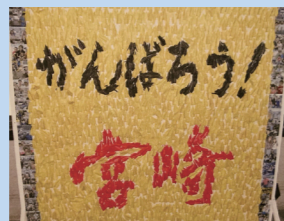 がんばろう!
宮崎